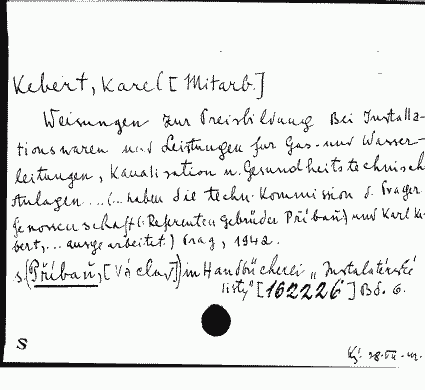 Kebert, Karel [Mitarb.]
Weisungen zur Preisbildung bei Installa-
tionswaren und Leistungen für Gas- und Wasser-
leitungen, Kanalisation u. Gesundheitstechnische
Anlagen ... (... haben die techn. Kommission d. Prager
Genossenschaft (: Referenten Gebrüder Příbaň) und Karl Ke-
bert, ... ausgearbeitet.) Prag, 1942.
s. (Příbaň, [Václav]) in Handbücherei „Instalatérské
listy" [162226] Bd. 6.
S 28.VII.